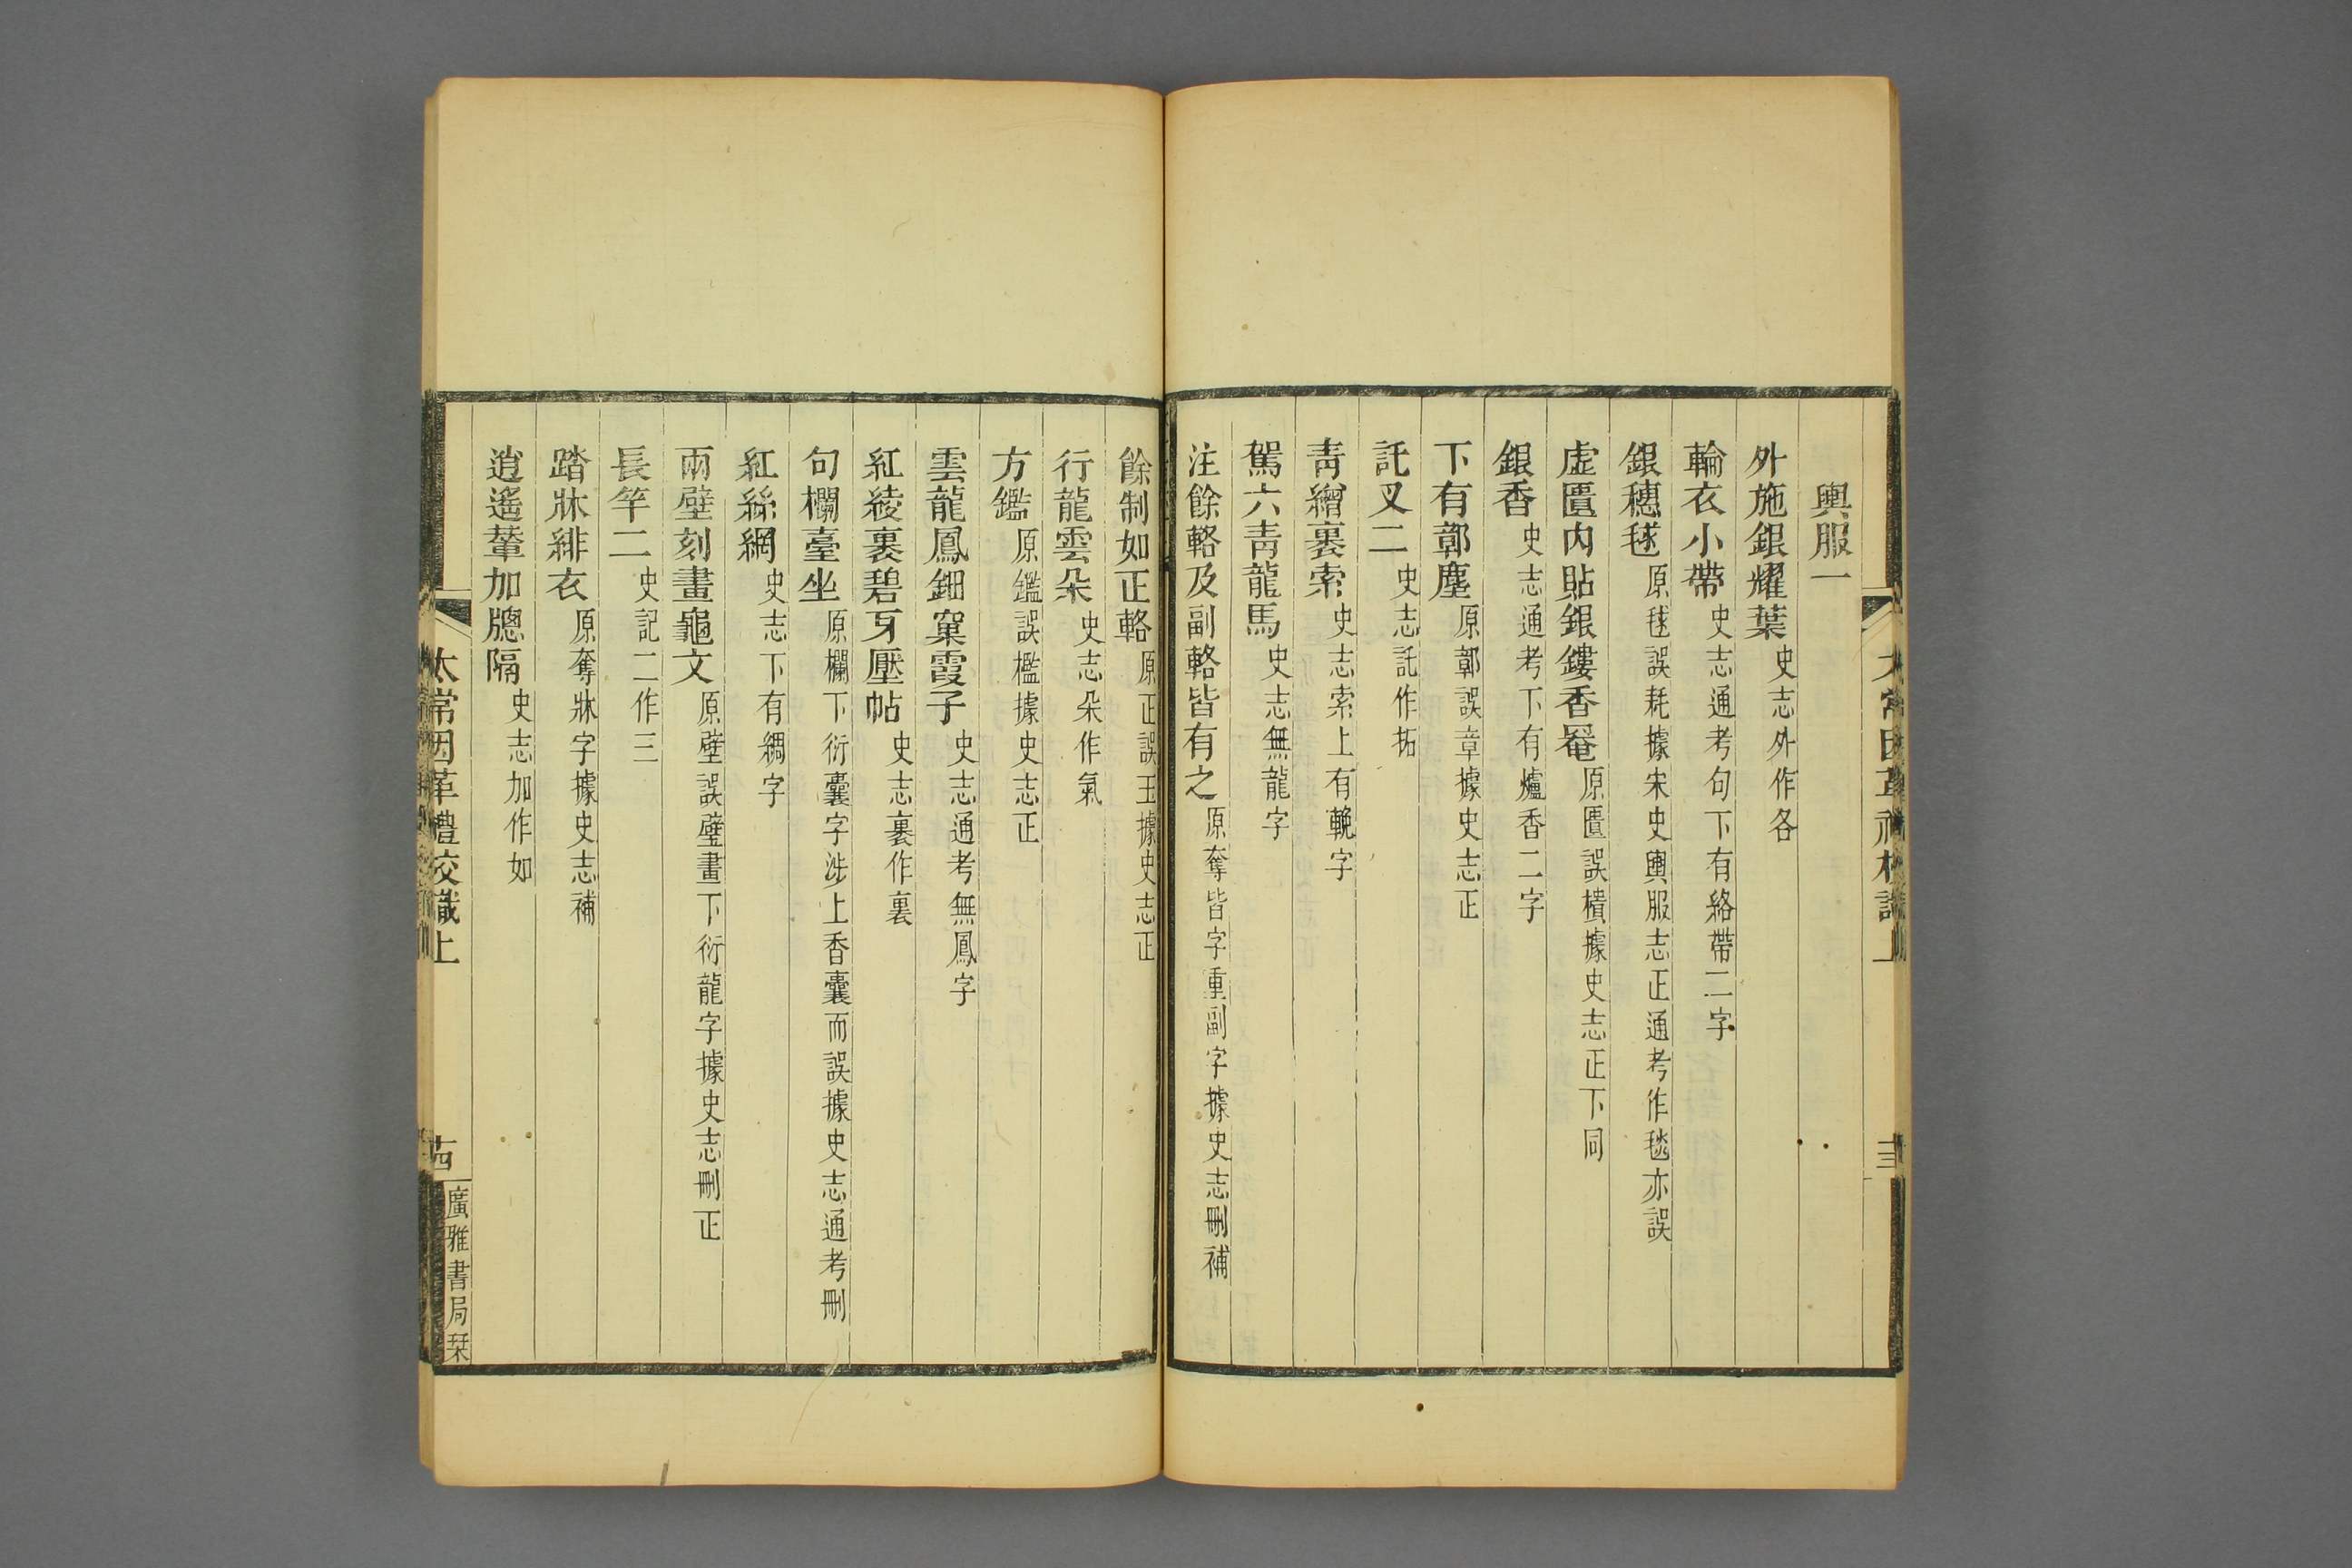 輿服一
外施銀耀葉史志外作各
輪衣小帶史志通考句下有絡帶二字
銀穗毬原毬誤耗據宋史輿服志正通考作毯亦誤
虛匱內貼銀鏤香罨原匱誤櫃據史志正下同
銀香史志通考下有爐香二字
下有鄣塵原鄣誤章據史志正
託叉二史志託作拓
青繒裹索史志索上有輓字
駕六青龍馬史志無龍字
注餘輅及副輅皆有之原奪皆字重副字據史志刪補
餘制如正輅原正誤王據史志正
行龍雲朵史志朵作氣
方鑑原鑑誤檻據史志正
雲龍鳳鈿窠霞子史志通考無鳳字
紅綾裹碧牙壓帖史志裹作裏
句欄臺坐原欄下衍囊字涉上香囊而誤據史志通考刪
紅絲網史志下有綢字
兩壁刻畫龜文原壁誤璧畫下衍龍字據史志刪正
長竿二史記二作三
踏牀緋衣原奪牀字據史志補
逍遙輦加牕隔史志加作如
太常因革禮校識上
十四
廣雅書局栞